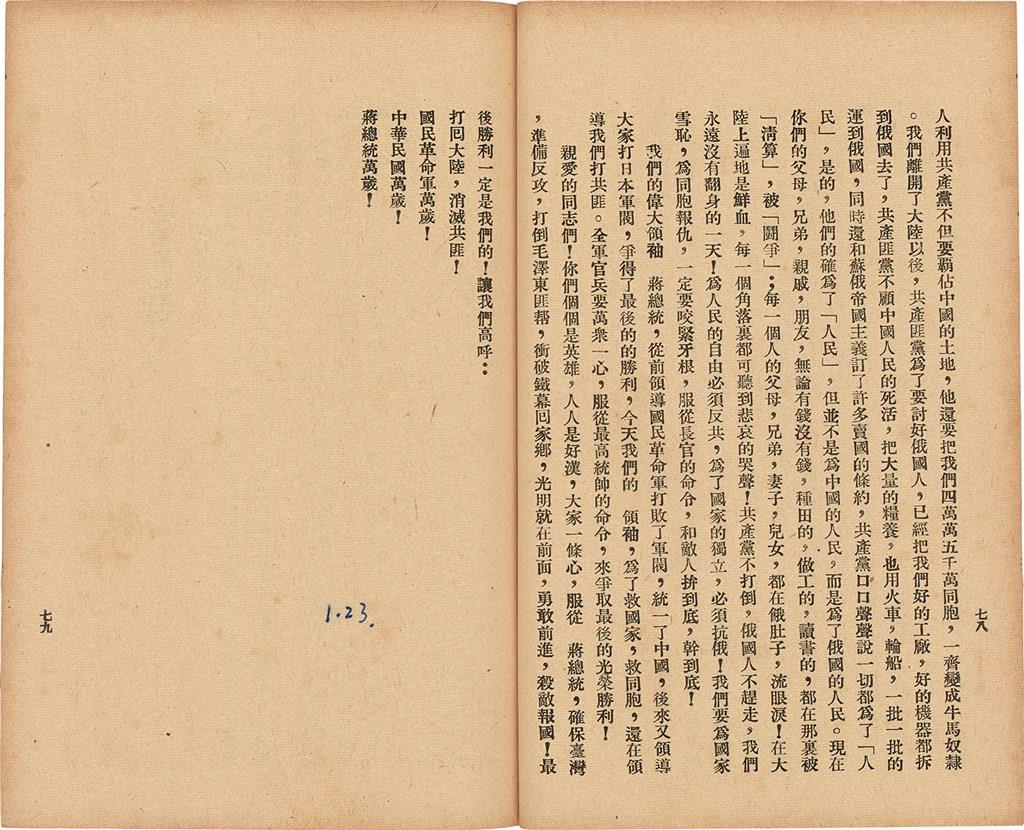 七八
人利用共產黨不但要霸佔中國的土地，他還要把我們四萬萬五千萬同胞，一齊變成牛馬奴隸
。我們離開了大陸以後，共產匪黨爲了要討好俄國人，已經把我們好的工廠，好的機器都拆
到俄國去了，共產匪黨不顧中國人民的死活，把大量的糧養，也用火車，輪船，一批一批的
運到俄國，同時還和蘇俄帝國主義訂了許多賣國的條約，共產黨口口聲聲說一切都爲了「人
民」，是的，他們的確爲了「人民」，但並不是爲中國的人民，而是爲了俄國的人民。現在
你們的父母，兄弟，親戚，朋友，無論有錢沒有錢，種田的，做工的，讀書的，都在那裏被
「淸算」，被「鬪爭」；每一個人的父母，兄弟，妻子，兒女，都在餓肚子，流眼淚！在大
陸上遍地是鮮血，每一個角落裏都可聽到悲哀的哭聲！共產黨不打倒，俄國人不趕走，我們
永遠沒有翻身的一天！爲人民的自由必須反共，爲了國家的獨立，必須抗俄！我們要爲國家
雪恥，爲同胞報仇，一定要咬緊牙根，服從長官的命令，和敵人拚到底，幹到底！
我們的偉大領袖　蔣總統，從前領導國民革命軍打敗了軍閥，統一了中國，後來又領導
大家打日本軍閥，爭得了最後的的勝利，今天我們的　領袖，爲了救國家，救同胞，還在領
導我們打共匪。全軍官兵要萬衆一心，服從最高統帥的命令，來爭取最後的光榮勝利！
親愛的同志們！你們個個是英雄，人人是好漢，大家一條心，服從　蔣總統，確保臺灣
，準備反攻，打倒毛澤東匪幫，衝破鐵幕囘家鄉，光明就在前面，勇敢前進，殺敵報國！最
後勝利一定是我們的！讓我們高呼：
打囘大陸，消滅共匪！
國民革命軍萬歲！
中華民國萬歲！
蔣總統萬歲！
1.23.
七九